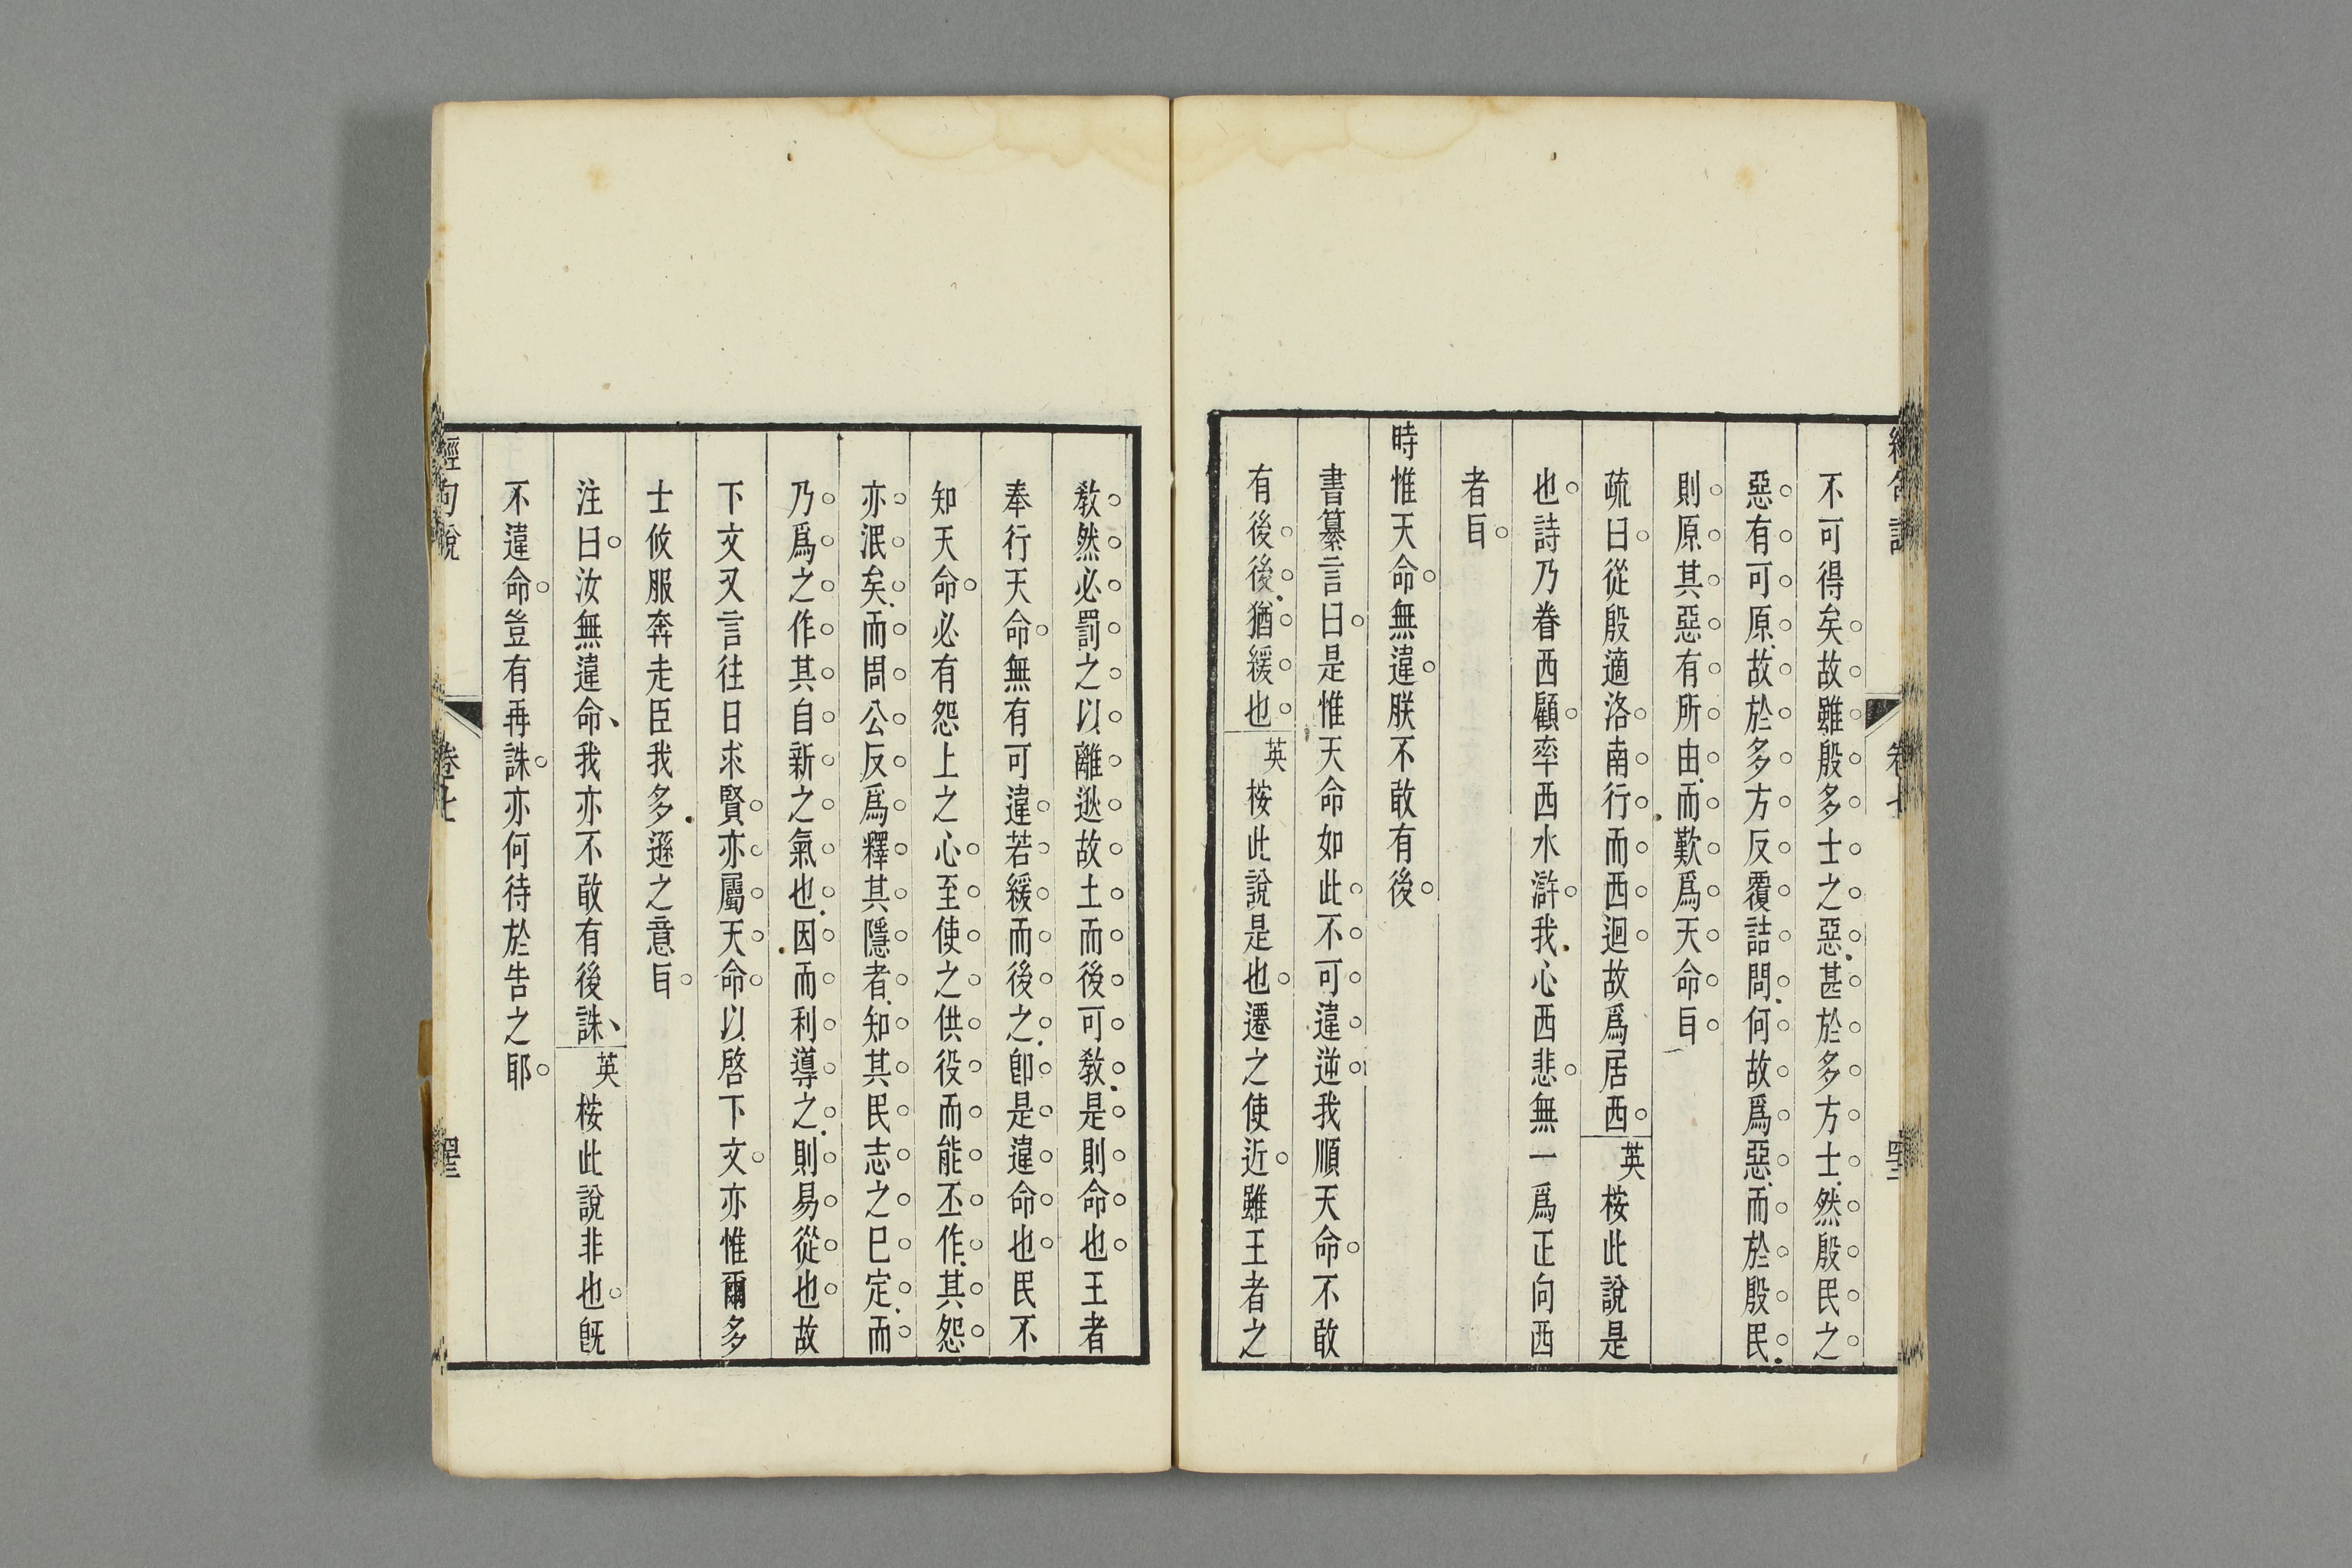 不可得矣故雖殷多士之惡甚於多方士然殷民之
惡有可原故於多方反覆詰問何故爲惡而於殷民
則原其惡有所由而歎爲天命㠯
疏曰從殷適洛南行而西迴故爲居西英桉此說是
也詩乃眷西顧率西水滸我心西悲無一爲正向西
者㠯
時惟天命無違朕不敢有後
書纂言曰是惟天命如此不可違逆我順天命不敢
有後後猶緩也英桉此說是也遷之使近雖王者之
教然必罰之以離逖故土而後可教是則命也王者
奉行天命無有可違若緩而後之卽是違命也民不
知天命必有怨上之心至使之供役而能丕作其怨
亦泯矣而周公反爲釋其隱者知其民志之已定而
乃爲之作其自新之氣也因而利導之則易從也故
下文又言往日求賢亦屬天命以啓下文亦惟爾多
士攸服奔走臣我多遜之意㠯
注曰汝無違命我亦不敢有後誅英桉此說非也旣
不違命豈有再誅亦何待於告之耶
經句說
卷七